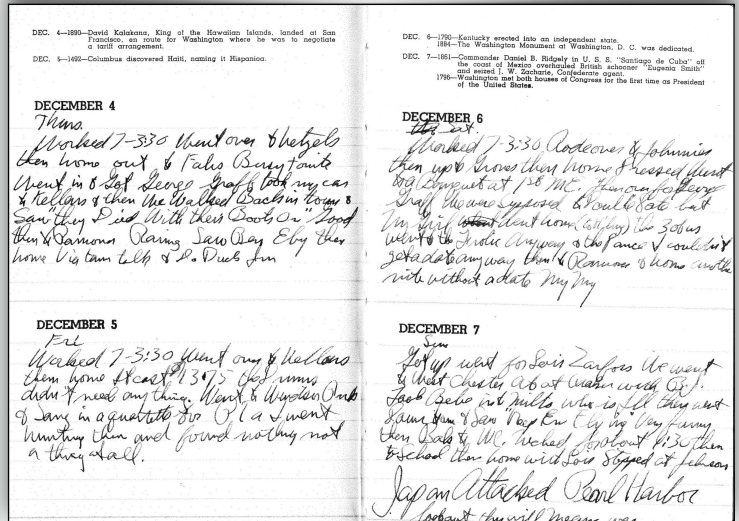 DEC. 4—1890—David Kalakana, King of the Hawaiian Islands, landed at San
Francisco, en route for Washington where he was to negotiate
a tariff arrangement.
DEC. 5—1492—Columbus discovered Haiti, naming it Hispanioa.
DECEMBER 4
Thurs.
Worked 7-3:30 Went over to
then home out to Busy tonite
Went in & Got George Graff took my car
to Kellars & then We Walked Back in town &
Saw "they Died With their Boots On" Good
then to Ramonas Saw Eby then
home
DECEMBER 5
Fri
Worked 7-3:30 Went over to Kellars
then home It cost $13.75
didn't need any thing. Went to
& Sang in a quartette for P T a I went
hunting then and found nothing not
a thing atall.
DEC. 6—1790—Kentucky erected into an independent state.
1884—The Washington Monument at Washington, D. C. was dedicated.
DEC. 7—1861—Commander Daniel B. Ridgely in U. S. S. "Santiago de Cuba" off
the coast of Mexico overhauled British schooner "Eugenia Smith"
and seized J. W. Zacharie, Confederate agent.
1796—Washington met both houses of Congress for the first time as President
of the United States.
DECEMBER 6
Sat.
Worked 7-3:30, Rode over to Johnnies
then up to Groves then home Dressed Went
to a Banquet at 1st then for George
Graff We were supposed to double date but
My Girl went home the 3 of us
went to the Frolic Anyway & the Dance & couldn't
get a date anyway then to Ramonas & home another
nite without a date My My
DECEMBER 7
Sun
Got up went for Lois We went
to West Chester
Took Babe in to Mills who is ill they went
down town & Saw "Keep Em Flying" Very Funny
then Back to WC. We had for about 1:30 then
to School then home with Lois Stopped at
Japan Attacked Pearl Harbor
lookout they will Means war